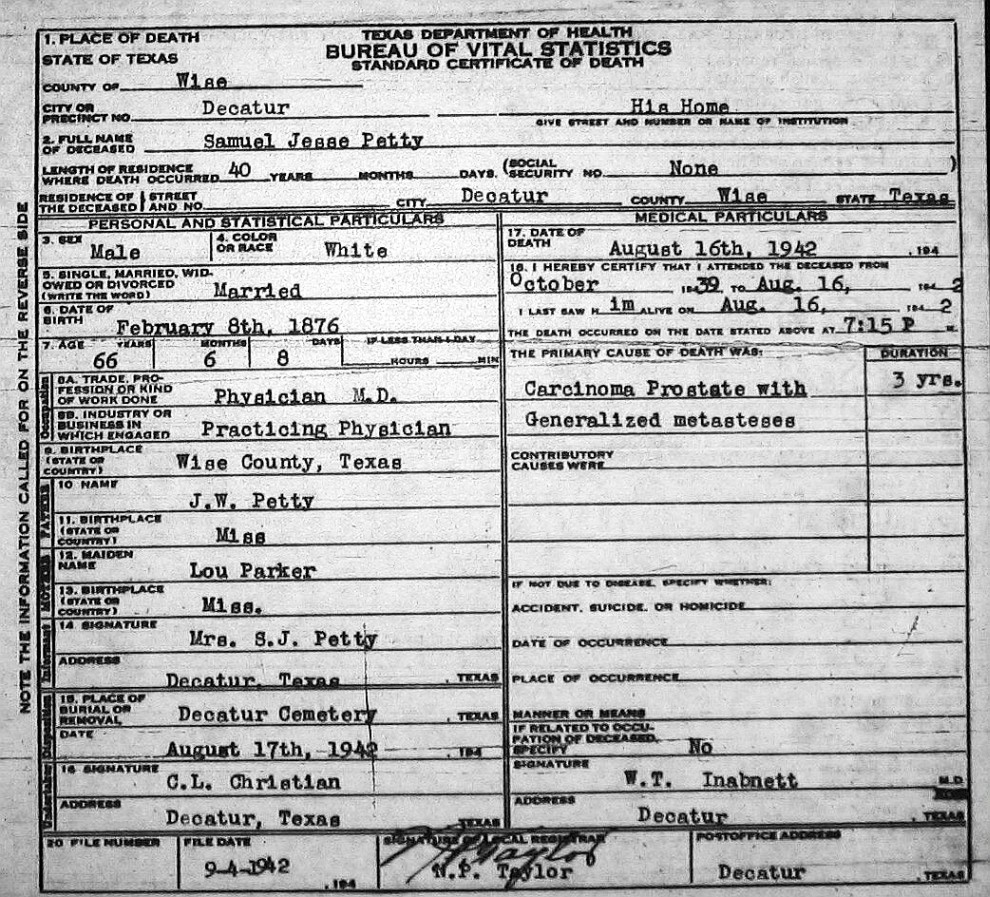 TEXAS DEPARTMENT OF HEALTH
BUREAU OF VITAL STATISTICS
STANDARD CERTIFICATE OF DEATH
1. PLACE OF DEATH
STATE OF TEXAS
COUNTY OF Wise
CITY OR PRECINCT NO. Decatur His Home
GIVE STREET AND NUMBER OR NAME OF INSTITUTION
2. FULL NAME OF DECEASED Samuel Jesse Petty
LENGTH OF RESIDENCE WHERE DEATH OCCURRED 40 YEARS MONTHS DAYS. (SOCIAL SECURITY NO. None )
RESIDENCE OF THE DECEASED STREET AND NO. CITY Decatur COUNTY Wise STATE Texas
PERSONAL AND STATISTICAL PARTICULARS
3. SEX Male
4. COLOR OR RACE White
5. SINGLE, MARRIED, WIDOWED OR DIVORCED (WRITE THE WORD) Married
6. DATE OF BIRTH February 8th, 1876
7. AGE YEARS MONTHS DAYS IF LESS THAN 1 DAY
66 6 8 HOURS MIN
Occupation
8A. TRADE, PROFESSION OR KIND OF WORK DONE Physician M.D.
8B. INDUSTRY OR BUSINESS IN WHICH ENGAGED Practicing Physician
9. BIRTHPLACE (STATE OR COUNTRY) Wise County, Texas
FATHER
10 NAME J.W. Petty
11. BIRTHPLACE (STATE OR COUNTRY) Miss
MOTHER
12. MAIDEN NAME Lou Parker
13. BIRTHPLACE (STATE OR COUNTRY) Miss.
Informant
14. SIGNATURE Mrs. S.J. Petty
ADDRESS Decatur, Texas , TEXAS
Disposition
15. PLACE OF BURIAL OR REMOVAL, Decatur Cemetery , TEXAS
DATE August 17th, 1942 , 194
Undertaker
16 SIGNATURE C.L. Christian
ADDRESS Decatur, Texas TEXAS
MEDICAL PARTICULARS
17. DATE OF DEATH August 16th, 1942 , 194
18. I HEREBY CERTIFY THAT I ATTENDED THE DECEASED FROM
October 1939 TO Aug. 16, 194 2
I LAST SAW H im ALIVE ON Aug. 16, 194 2
THE DEATH OCCURRED ON THE DATE STATED ABOVE AT 7:15 P M.
THE PRIMARY CAUSE OF DEATH WAS: DURATION
Carcinoma Prostate with 3 yrs.
Generalized metasteses
CONTRIBUTORY CAUSES WERE
IF NOT DUE TO DISEASE, SPECIFY WHETHER:
ACCIDENT, SUICIDE, OR HOMICIDE
DATE OF OCCURRENCE
PLACE OF OCCURRENCE
MANNER OR MEANS
IF RELATED TO OCCUPATION OF DECEASED, SPECIFY No
SIGNATURE W.T. Inabnett M.D.
ADDRESS Decatur , TEXAS
20 FILE NUMBER
FILE DATE 9-4-1942 , 194
SIGNATURE OF LOCAL REGISTRAR
N.P. Taylor
POSTOFFICE ADDRESS
Decatur , TEXAS
NOTE THE INFORMATION CALLED FOR ON THE REVERSE SIDE